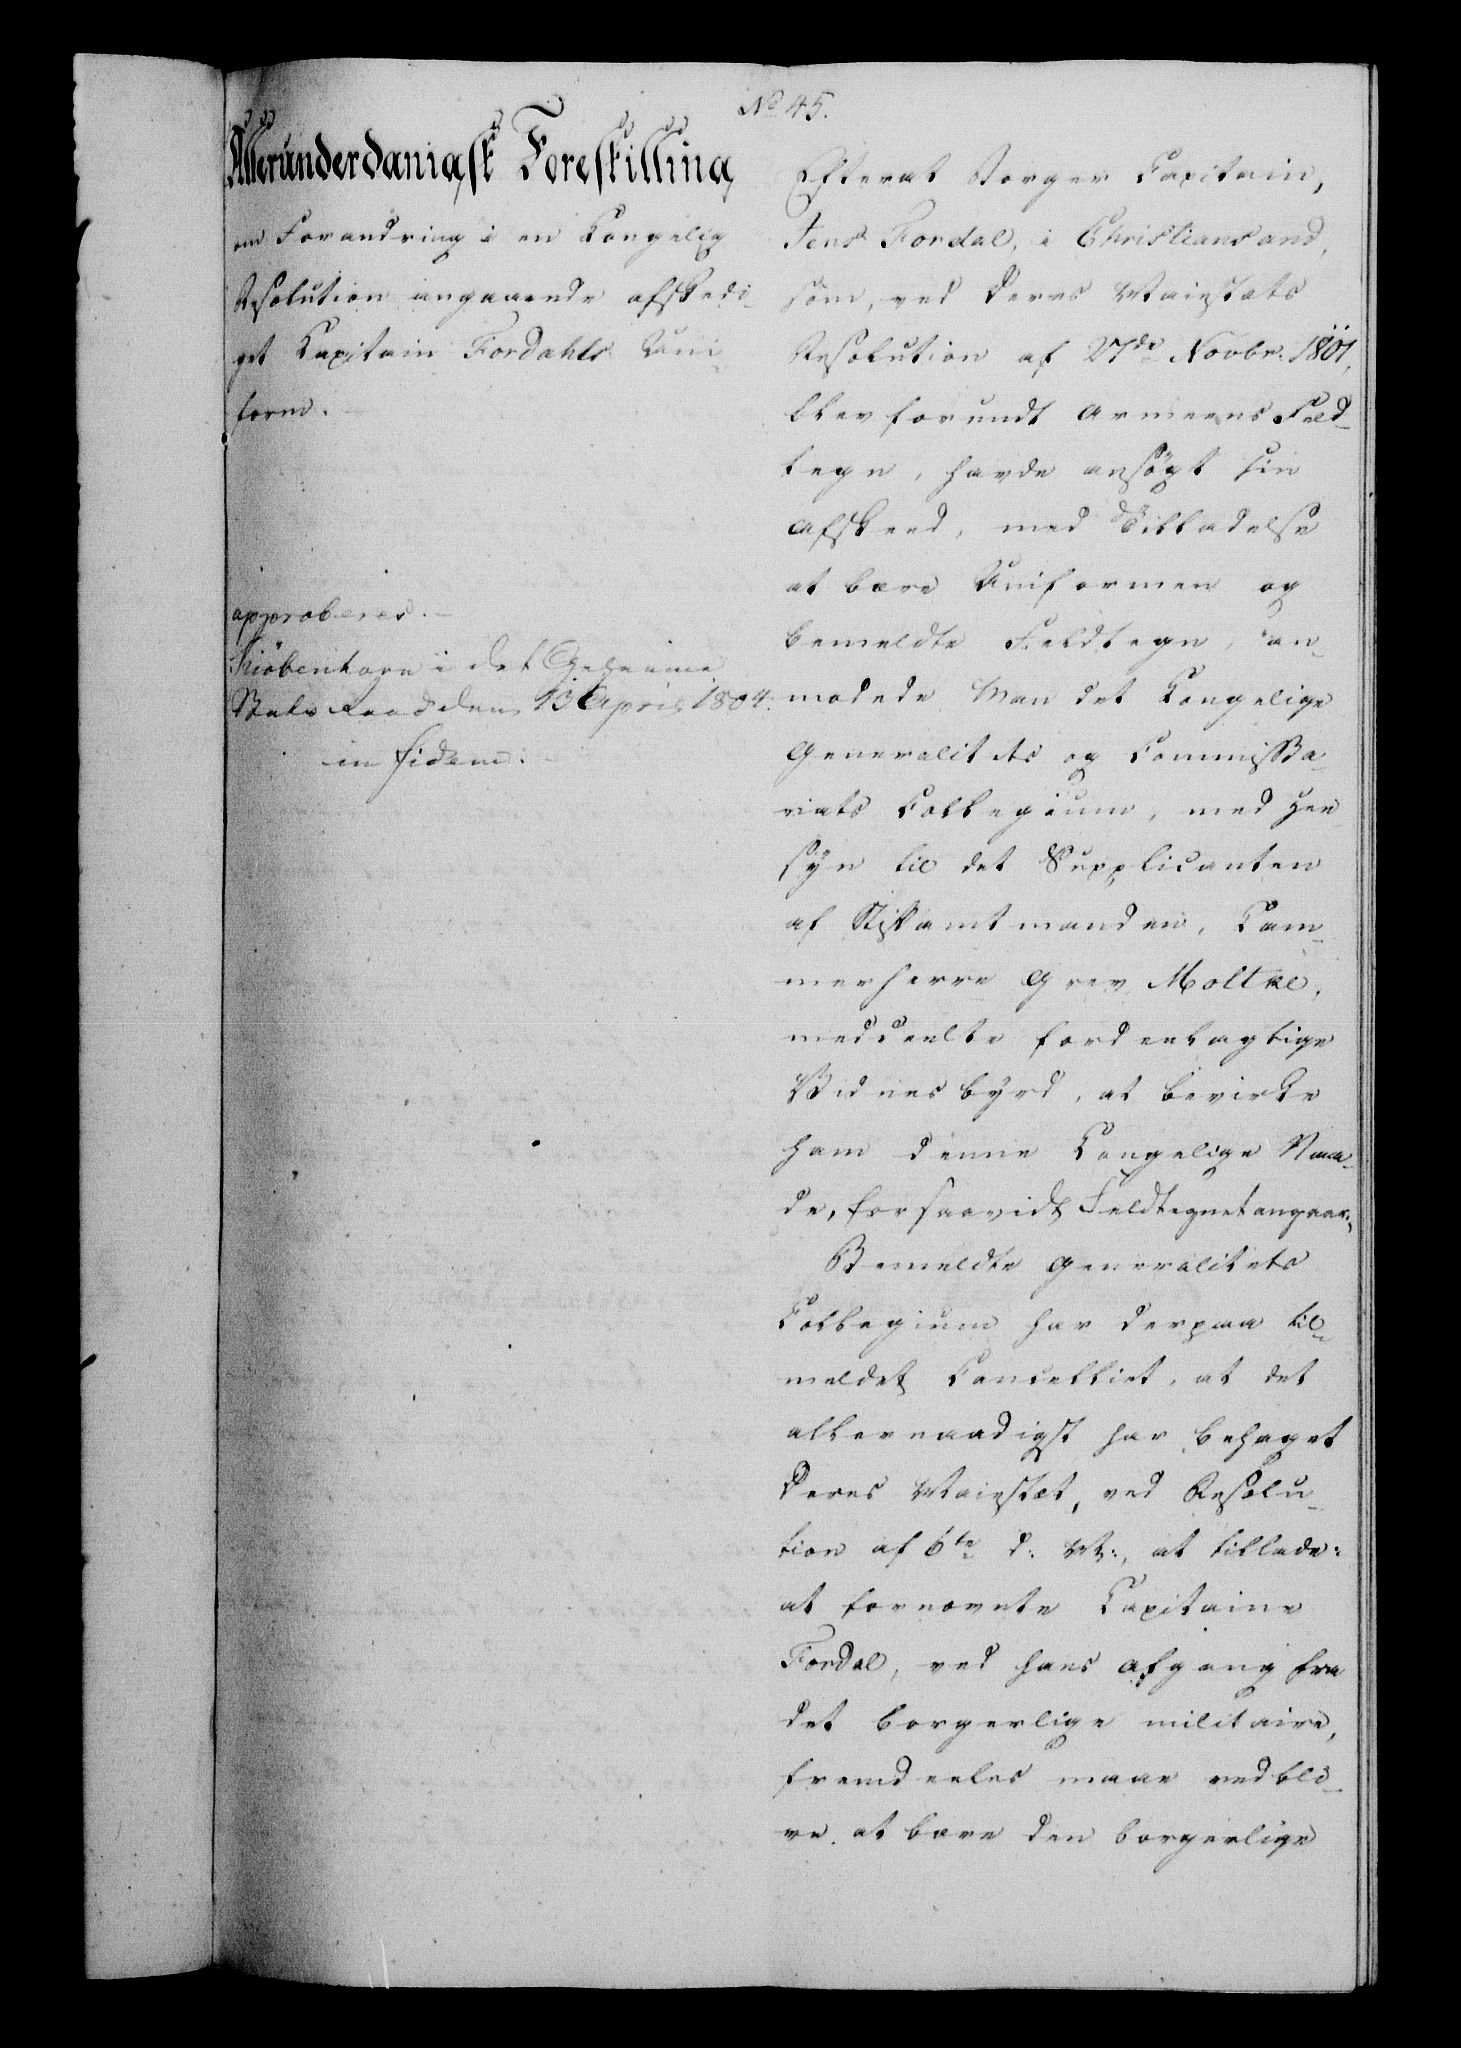 No 45.
Allerunderdanigst Forestilling
om Forandring i en Kongelig
Resolution angaaende afskedi-
get Capitain Fordahls Uni-
form.
approberes.
Kiöbenhavn i det Geheime
Stats Raad den 13 April 1804.
in fidem.
Efterat Borger Capitain,
Jens Fordal, i Christiansand,
som, ved Deres Maiestæts
Resolution af 27de Novbr. 1801,
blev forundt Armeens Feld-
tegn, havde ansögt sin
Afskeed, med Tilladelse
at bære Uniformen og
bemeldte Feldtegn, an-
modede Man det Kongelige
Generalitets og Commissa-
riats Collegium, med Hen-
syn til det Supplicanten
af Stiftamtmanden, Kam-
merherre Grev Moltke,
meddeelte fordeelagtige
Vidnesbyrd, at bevirke
ham denne Kongelige Naa-
de, forsaavidt Feldtegnet angaaer.
Bemeldte Generalitets
Collegium har derpaa til-
meldet Cancelliet, at det
allernaadigst har behaget
Deres Maiestæt, ved Resolu-
tion af 6te d: M:, at tillade:
at fornævnte Capitaine
Fordal, ved hans Afgang fra
det borgerlige militaire,
fremdeeles maae vedbli-
ve at bære den borgerlige